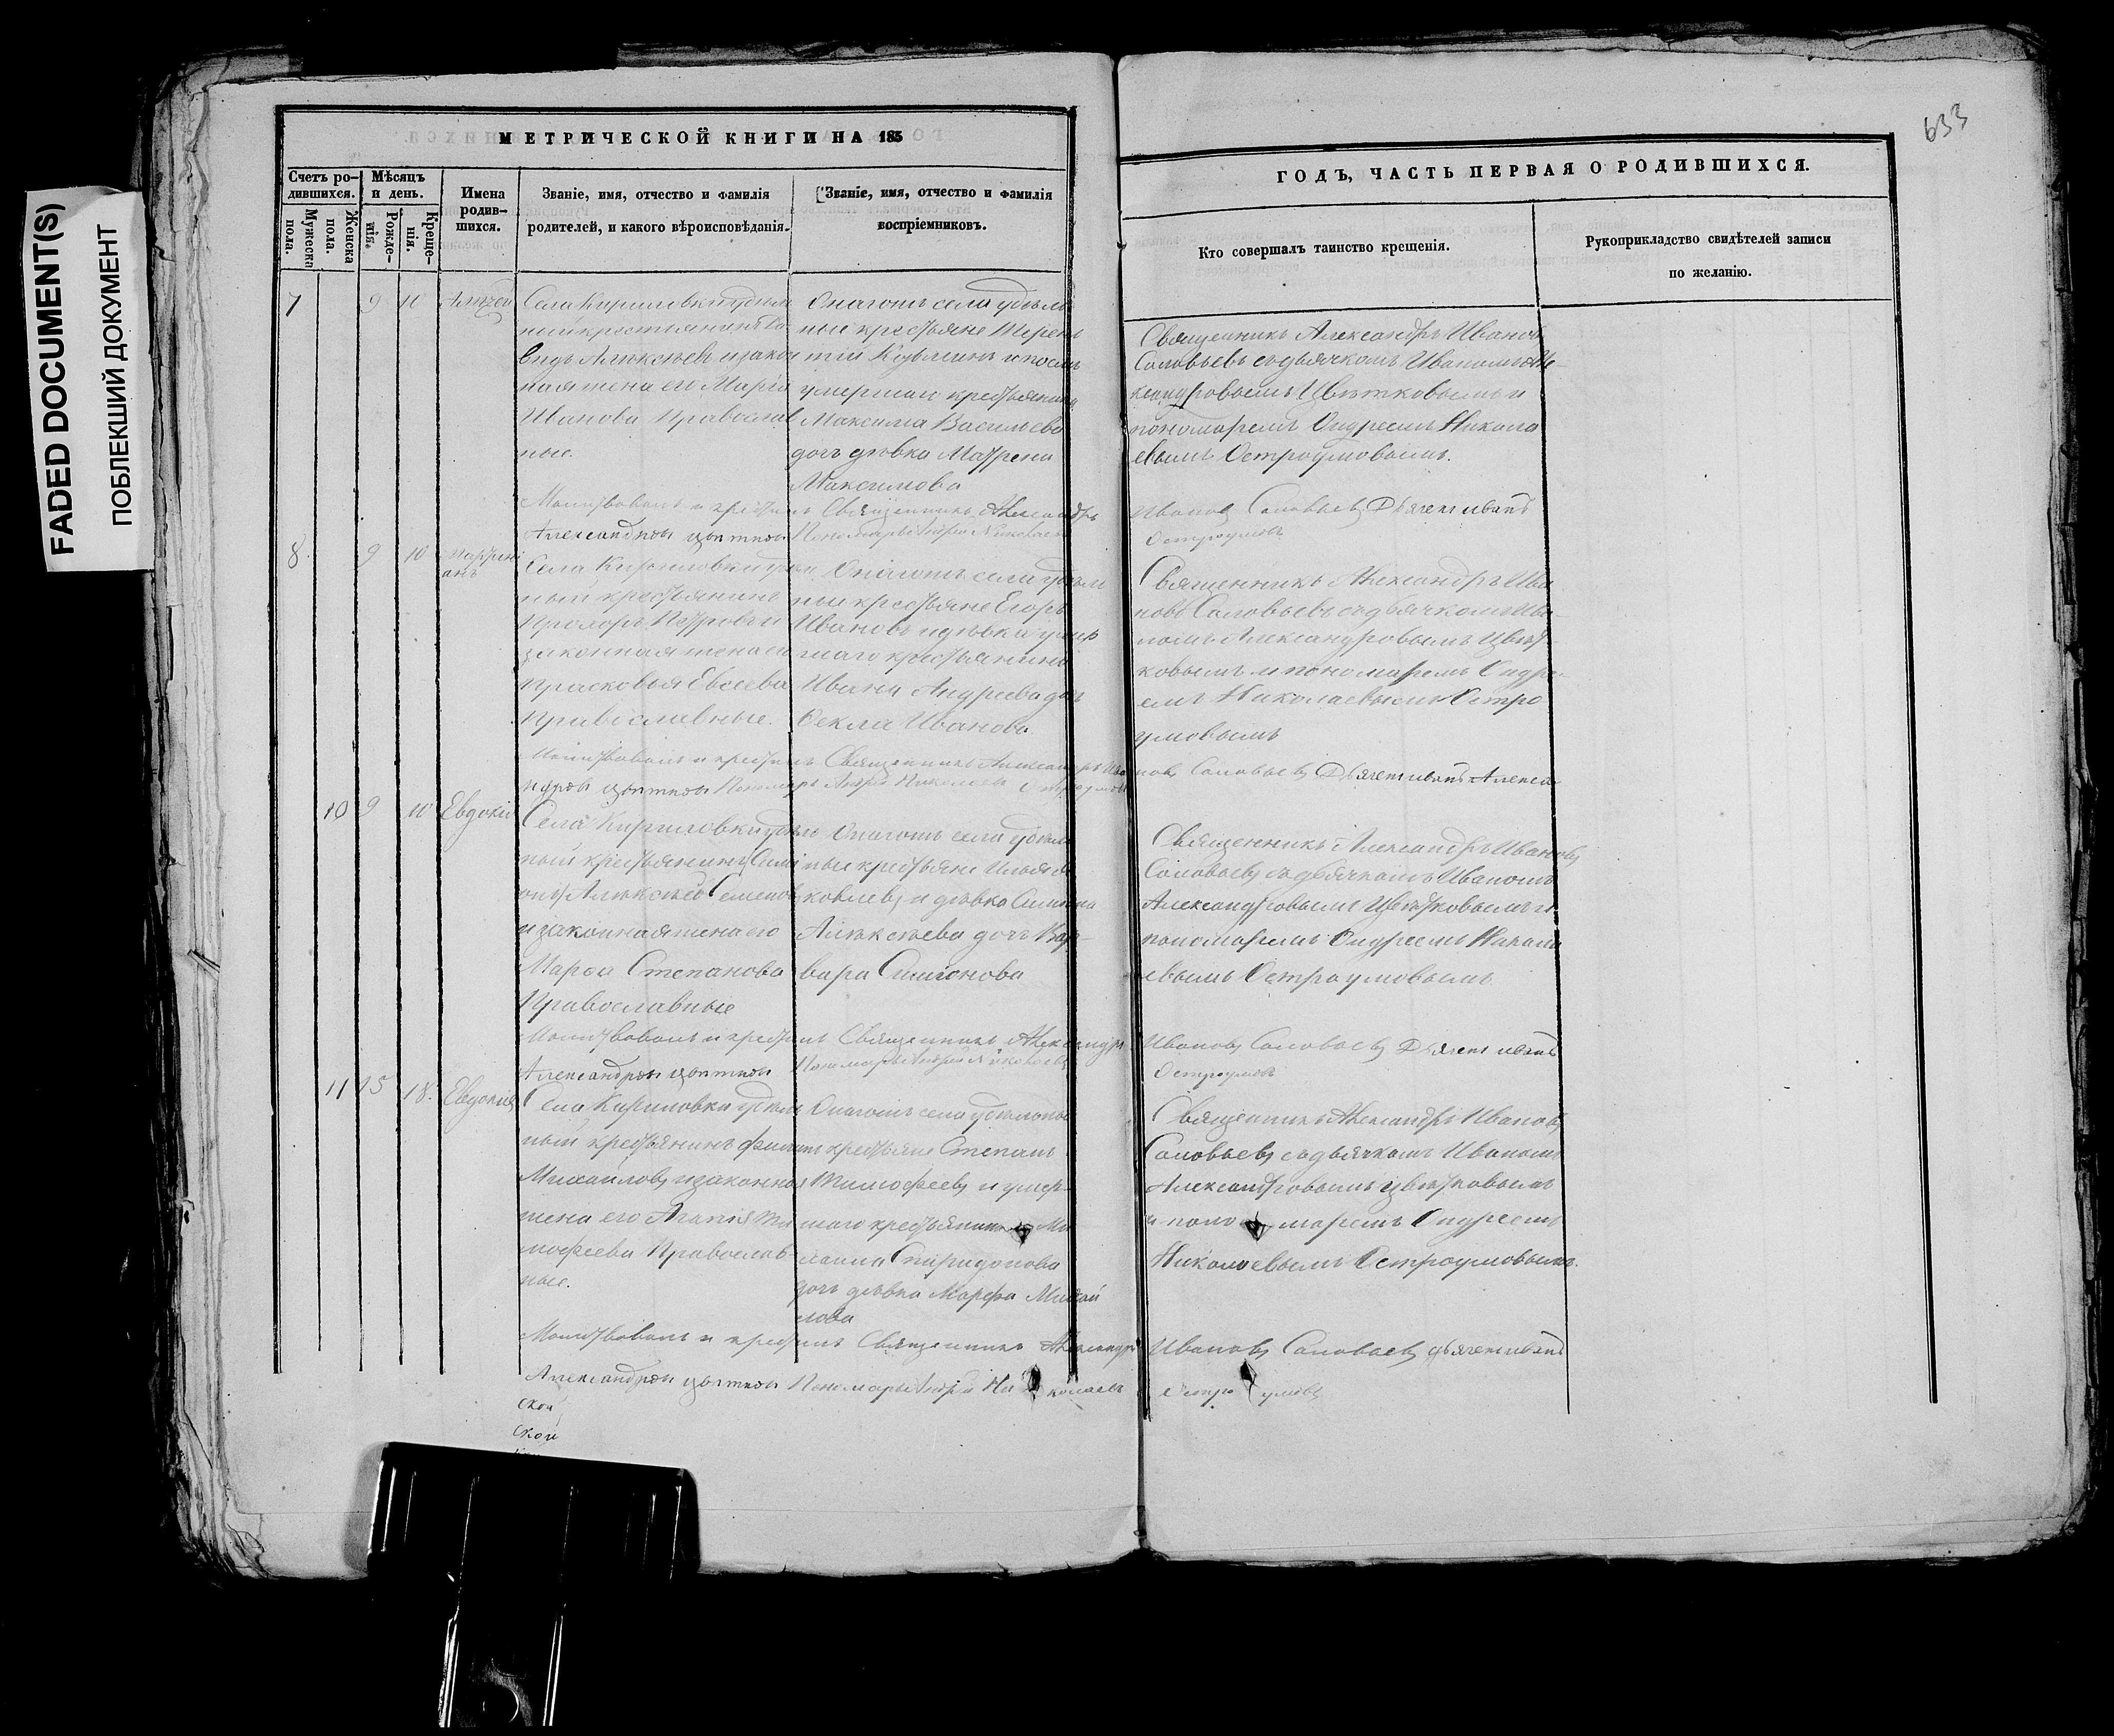 FADED DOCUMENT(S)
ПОБЛЕКШИЙ ДОКУМЕНТ
633
МЕТРИЧЕСКОЙ КНИГИ НА 185
Счетъ ро-
дившихся.
Мужеска
пола.
Женска
пола.
Мѣсяцъ
и день.
Рожде-
нія.
Креще-
нія.
Имена
родив-
шихся.
Званіе, имя, отчество и фамилія
родителей, и какого вѣроисповѣданія.
Званіе, имя, отчество и фамилія
воспріемниковъ.
ГОДЪ, ЧАСТЬ ПЕРВАЯ О РОДИВШИХСЯ.
Кто совершалъ таинство крещенія.
Рукоприкладство свидѣтелей записи
по желанію.
7 9 10
Села Кириловки удѣль
ный крестьянинъ Да
видъ Алексѣевъ и закон
ная жена его Марія
Иванова Православ
ные.
Онагожъ села удѣль
ные крестьяне Терен
тій Кузьминъ
умершаго крестьянина
Максима Васильева
дочь дѣвка Матрена
Максимова
Священникъ Александръ Ивановъ
Соловьевъ съ дьячкомъ Иваномъ Але-
ксандровымъ Цвѣтковымъ и
пономаремъ Андреемъ Никола
евымъ Остроумовымъ.
Молитвовалъ и крестилъ Священникъ Александръ Ивановъ Соловьевъ Дьячекъ иванъ
Александровъ цвѣтковъ Пономарь Андрей Николаевъ Остроумовъ
8. 9 10
Села Кириловки удѣль
ный крестьянинъ
Прохоръ Петровъ и
законная жена его
Прасковья Евсеева
Православные.
Онагожъ села удѣль
ные крестьяне Егоръ
Ивановъ и дѣвка умер
шаго крестьянина
Ивана Андреева дочь
Ѳекла Иванова
Священникъ Александръ Ива
новъ Соловьевъ съ дьячкомъ Ива-
номъ Александровымъ Цвѣт-
ковымъ и пономаремъ Андре-
емъ Николаевымъ Остро
умовымъ
Молитвовалъ и крестилъ Священникъ Александръ Ивановъ Соловьевъ Дьячекъ иванъ Алекса
ндровъ цвѣтковъ Пономарь Андрей Николаевъ Остроумовъ
10 9 10 Евдокія
Села Кириловки удѣль
ный крестьянинъ Сими
онъ Алексѣевъ Семеновъ
и законная жена его
Марѳа Степанова
Православные
Онагожъ села удѣль
ные крестьяне Илья Я
ковлевъ и дѣвка Симіона
Алексѣева дочь Вар-
вара Симіонова
Священникъ Александръ Ивановъ
Соловьевъ съ дьячкомъ Иваномъ
Александровымъ Цвѣтковымъ и
пономаремъ Андреемъ Никола
евымъ Остроумовымъ
Молитвовалъ и крестилъ Священникъ Александръ Ивановъ Соловьевъ Дьячекъ иванъ
Александровъ цвѣтковъ Пономарь Андрей Николаевъ Остроумовъ
11 15 18. Евдокія
Села Кириловки удѣль
ный крестьянинъ Филипъ
Михайловъ и законная
жена его Агапія Ти
мофеева Православ
ные.
Онагожъ села удѣльные
крестьяне Степанъ
Тимофеевъ и умер-
шаго крестьянина Ми
хаила Спиридонова
дочь дѣвка Марфа Михай
лова
Священникъ Александръ Ивановъ
Соловьевъ съ дьячкомъ Иваномъ
Александровымъ Цвѣтковымъ
и пономаремъ Андреемъ
Николаевымъ Остроумовымъ.
Молитвовалъ и крестилъ Священникъ Александръ Ивановъ Соловьевъ дьячекъ иванъ
Александровъ цвѣтковъ Пономарь Андрей Николаевъ Остроумовъ
ской
ской